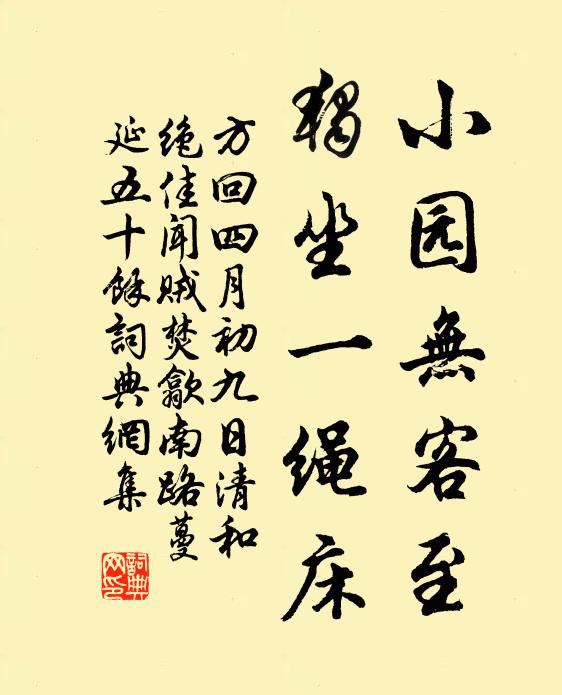 小园無客至
獨坐一绳床
方回四月初九日清和
绝佳闻贼焚歙南路蔓
延五十餘詞典網集
詞典
网印